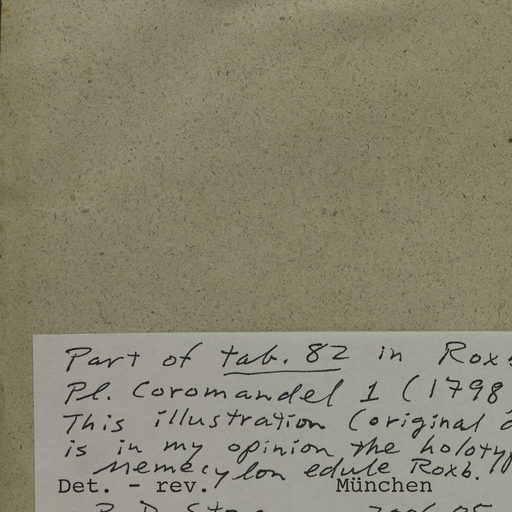 Part of tab. 82 in Rox
Pl. Coromandel 1 (1798
This illustration (original
is in my opinion the holoty
Memecylon edule Roxb.
Det. - rev. München